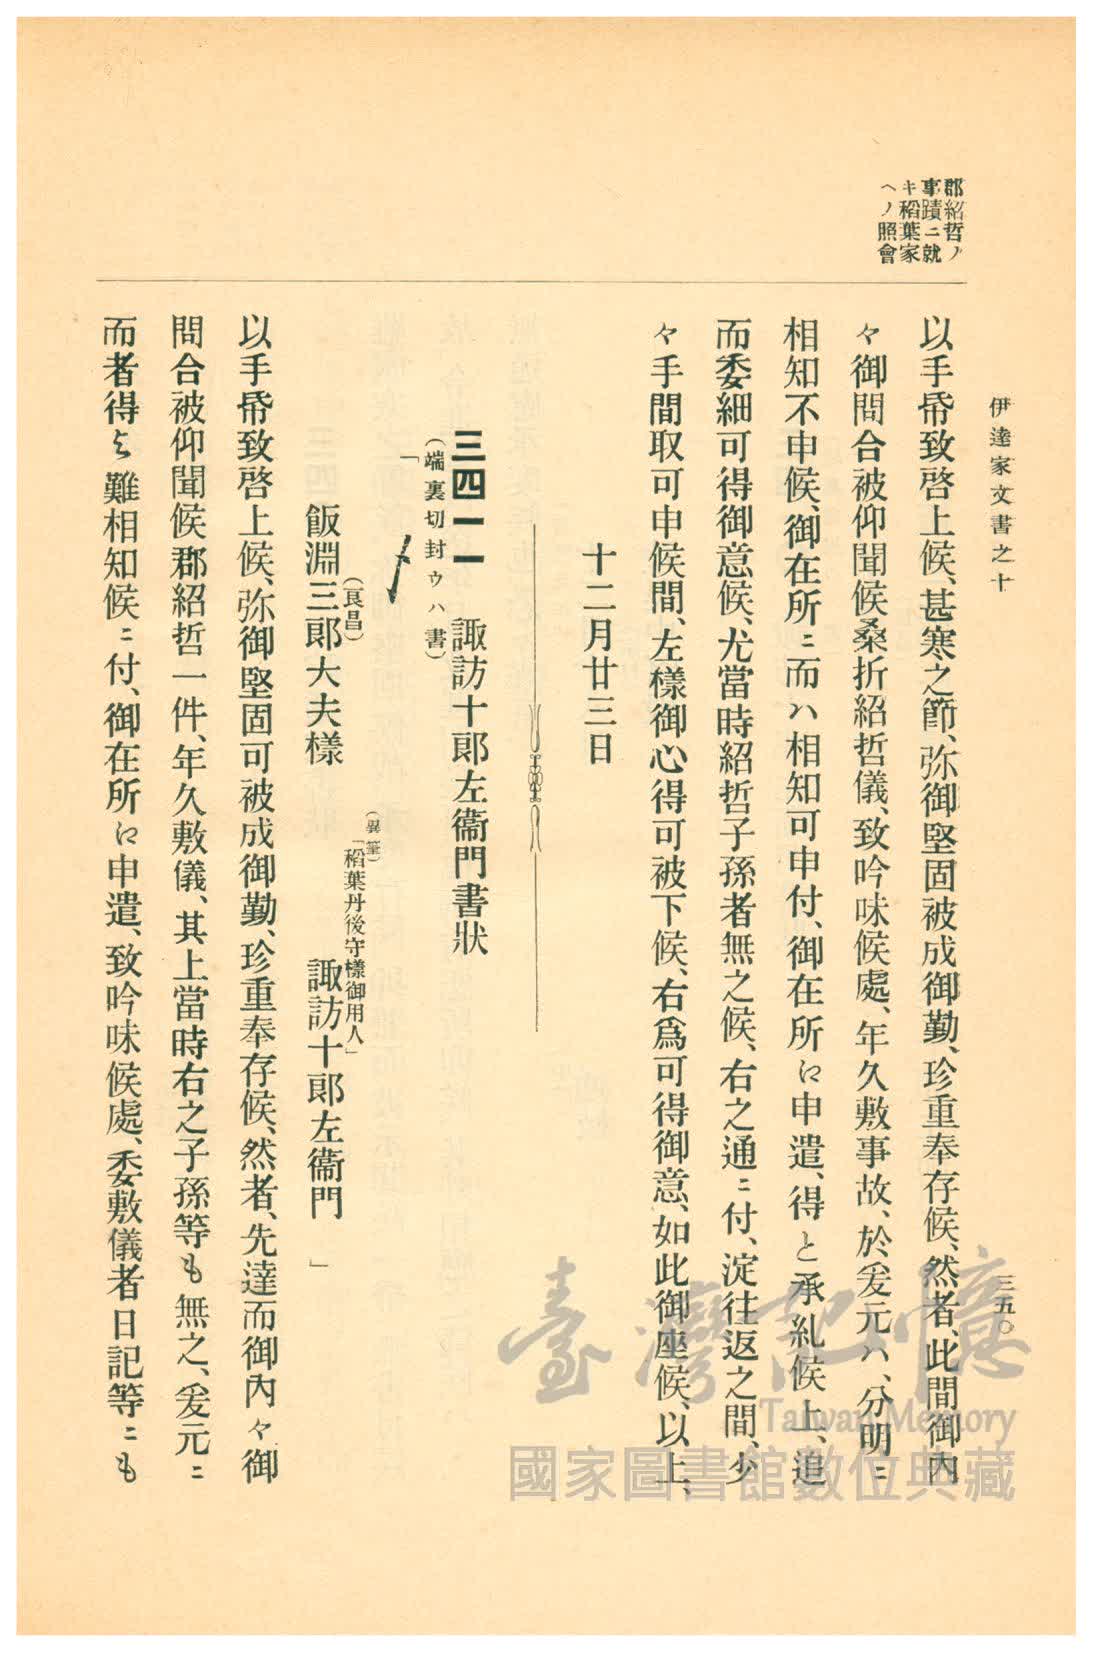 伊達家文書之十
三五〇
郡紹哲ノ
事蹟ニ就
キ稻葉家
ヘノ照會
以手帋致啓上候、甚寒之節、弥御堅固被成御勤、珍重奉存候、然者、此間御內
々御問合被仰聞候桑折紹哲儀、致吟味候處、年久敷事故、於爰元ハ、分明ニ
相知不申候、御在所ニ而ハ相知可申付、御在所江申遣、得と承糺候上、追
而委細可得御意候、尤當時紹哲子孫者無之候、右之通ニ付、淀往返之間、少
々手間取可申候間、左樣御心得可被下候、右爲可得御意、如此御座候、以上、
十二月廿三日
三四一一 諏訪十郞左衞門書狀
(端裏切封ウハ書)
「
(良昌)
飯淵三郎大夫樣
(異筆)
「稻葉丹後守樣御用人」
諏訪十郞左衞門 」
以手帋致啓上候、弥御堅固可被成御勤、珍重奉存候、然者、先達而御內々御
問合被仰聞候郡紹哲一件、年久敷儀、其上當時右之子孫等も無之、爰元ニ
而者得与難相知候ニ付、御在所江申遣、致吟味候處、委敷儀者日記等ニも
臺灣記憶
Taiwan Memory
國家圖書館數位典藏